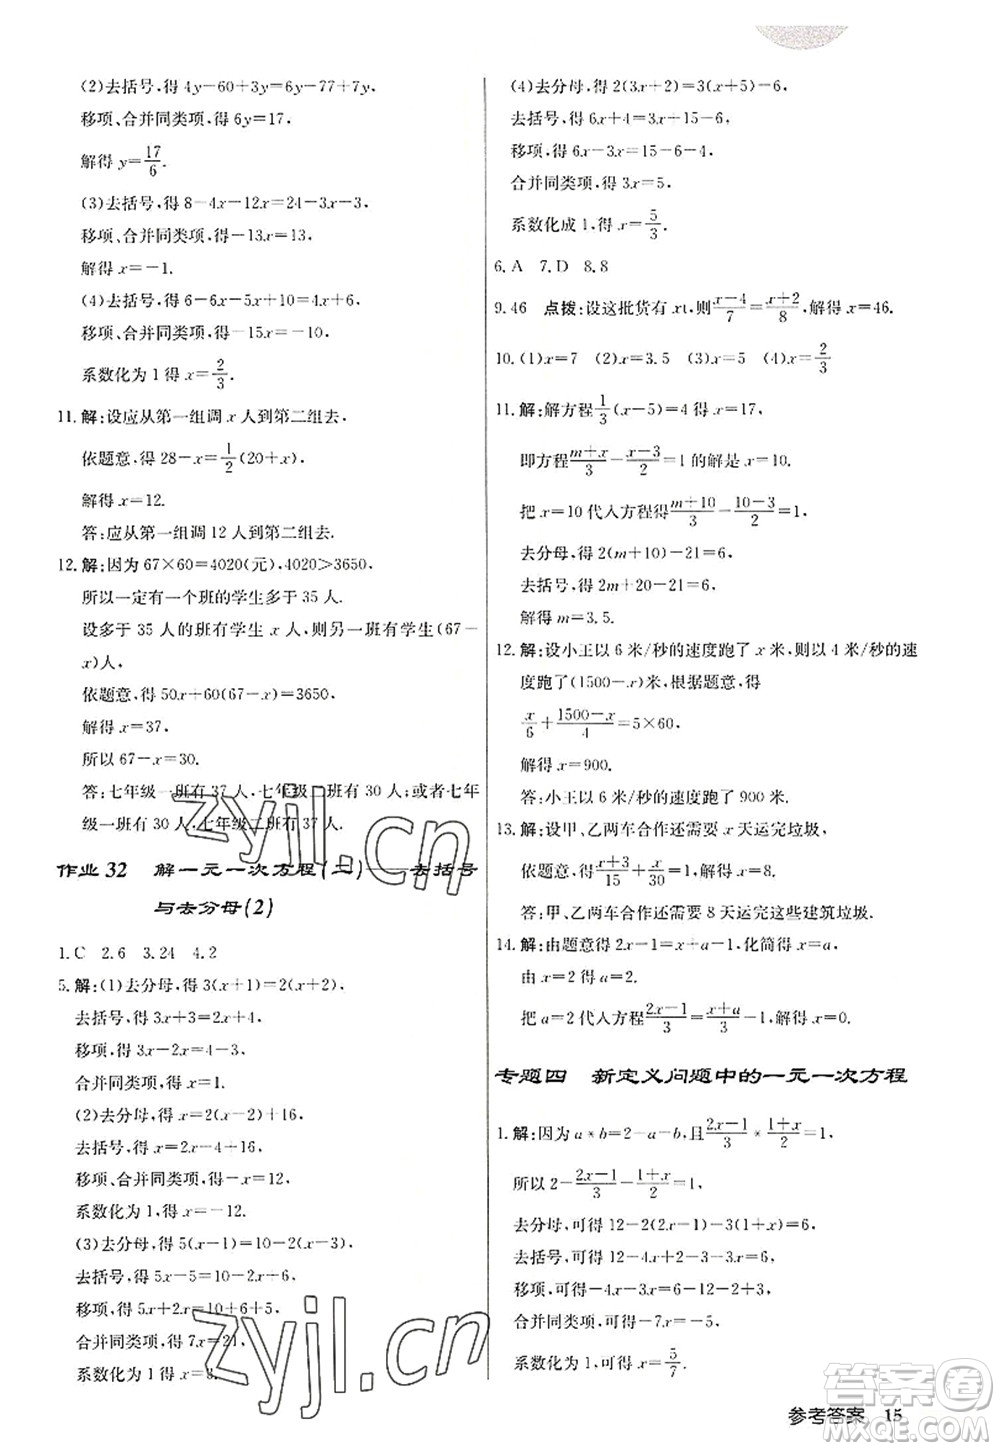 (2)去括号,得 4y−60+3y=6y−77,
移项、合并同类项,得 6y=17,
解得 y=17/6.
(3)去括号,得 8−4x−12x=24−3x−3,
移项、合并同类项,得−13x=13,
解得 x=−1.
(4)去括号,得 6−6x−5x+10=4x+6,
移项、合并同类项,得−15x=−10,
系数化为 1 得 x=2/3.
11.解:设应从第一组调 x 人到第二组去.
依题意,得 28−x=1/2(20+x),
解得 x=12.
答:应从第一组调 12 人到第二组去.
12.解:因为 67×60=4020(元),4020>3650,
所以一定有一个班的学生多于 35 人.
设多于 35 人的班有学生 x 人,则另一班有学生(67−
x)人,
依题意,得 50x+60(67−x)=3650,
解得 x=37,
所以 67−x=30.
答:七年级一班有 37 人,七年级二班有 30 人;或者七年
级一班有 30 人,七年级二班有 37 人.
作业 32 解一元一次方程(二)——去括号
与去分母(2)
1.C 2.6 3.24 4.2
5.解:(1)去分母,得 3(x+1)=2(x+2),
去括号,得 3x+3=2x+4,
移项,得 3x−2x=4−3,
合并同类项,得 x=1.
(2)去分母,得 x=2(x−2)+16,
去括号,得 x=2x−4+16,
移项、合并同类项,得−x=12,
系数化为 1,得 x=−12.
(3)去分母,得 5(x−1)=10−2(x−3),
去括号,得 5x−5=10−2x+6,
移项,得 5x+2x=10+6+5,
合并同类项,得 7x=21,
系数化为 1,得 x=3.
(4)去分母,得 2(3x+2)=3(x−5)−6,
去括号,得 6x+4=3x−15−6,
移项,得 6x−3x=−15−6−4,
合并同类项,得 3x=5,
系数化成 1,得 x=5/3.
6.A 7.D 8.8
9.46 点拨:设这批货有 xt,则(x−4)/7=(x+2)/8,解得 x=46.
10.(1)x=7 (2)x=3.5 (3)x=5 (4)x=2/3
11.解:解方程1/3(x−5)=4 得 x=17,
即方程(m+x)/3−(x−3)/2=1 的解是 x=10.
把 x=10 代入方程得(m+10)/3−(10−3)/2=1,
去分母,得 2(m+10)−3×7=6,
去括号,得 2m+20−21=6,
解得 m=3.5.
12.解:设小王以 6 米/秒的速度跑了 x 米,则以 4 米/秒的速
度跑了(1500−x)米,根据题意,得
x/6+(1500−x)/4=5×60,
解得 x=900.
答:小王以 6 米/秒的速度跑了 900 米.
13.解:设甲、乙两车合作还需要 x 天运完垃圾,
依题意,得(3+x)/15+x/30=1,解得 x=8.
答:甲、乙两车合作还需要 8 天运完这些建筑垃圾.
14.解:由题意得 2x−1=x+a−1,化简得 x=a.
由 x=2 得 a=2.
把 a=2 代入方程(2x−1)/3=(x+a)/3−1,解得 x=0.
专题四 新定义问题中的一元一次方程
1.解:因为 a*b=2−a−b,且(2x−1)/3*(1+x)/2=1,
所以 2−(2x−1)/3−(1+x)/2=1,
去分母,可得 12−2(2x−1)−3(1+x)=6,
去括号,可得 12−4x+2−3−3x=6,
移项,可得−4x−3x=6−12−2+3,
合并同类项,可得−7x=−5,
系数化为 1,可得 x=5/7.
参考答案 15
zyjl.cn
zyjl.cn
答案卷
MXQE.COM